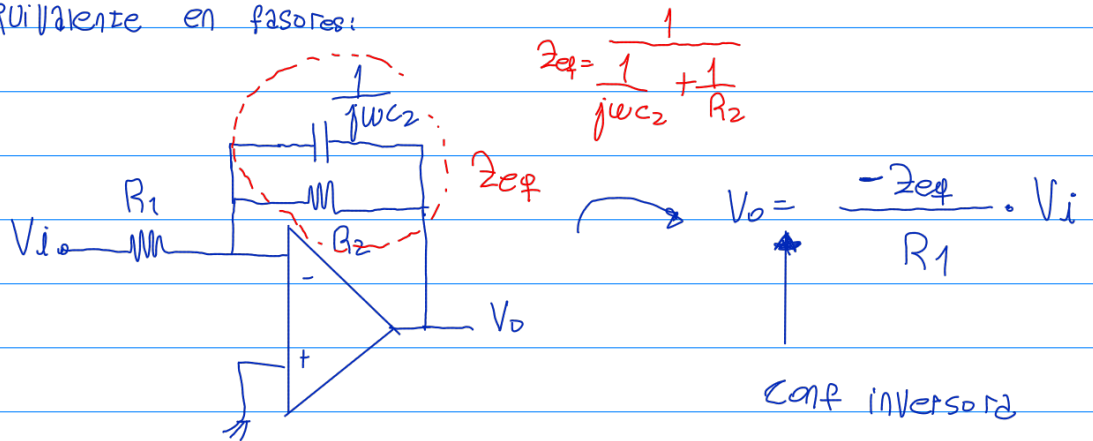 quivalente en fasores:
Zeq = 1 / (1/jwc2 + 1/R2)
1/jwc2
Zeq
R1
Vi
R2
-
+
Vo
Vo = -Zeq/R1 . Vi
conf inversora